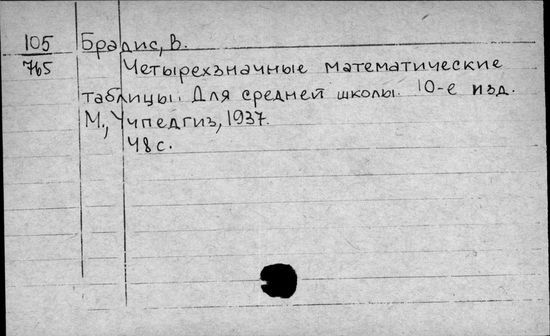 105 Брадис, В.
765 Четырехзначные математические
таблицы. Для средней школы. 10-е изд.
М., Учпедгиз, 1937.
48 с.